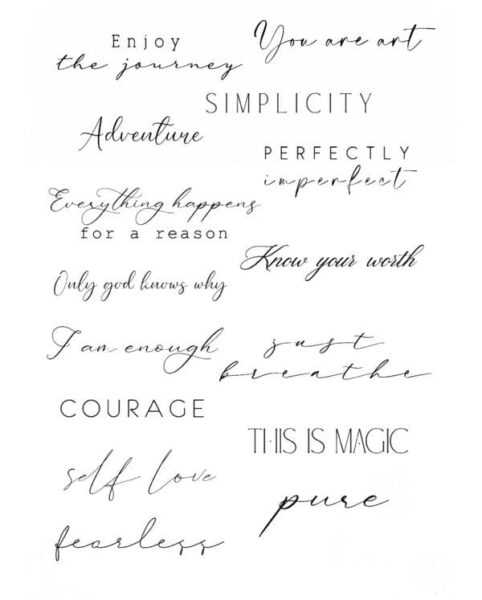 Enjoy
the journey
You are art
SIMPLICITY
Adventure
PERFECTLY
imperfect
Everything happens
for a reason
Know your worth
Only god knows why
I am enough
just
breathe
COURAGE
THIS IS MAGIC
self love
pure
fearless